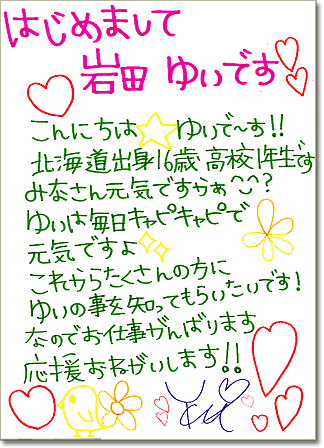 はじめまして
岩田 ゆいです
こんにちは☆ゆいで〜す!!
北海道出身16歳 高校1年生です
みなさん元気ですかぁ^^?
ゆいは毎日キャピキャピで
元気ですよ
これからたくさんの方に
ゆいの事を知ってもらいたいです!
なのでお仕事がんばります
応援おねがいします!!